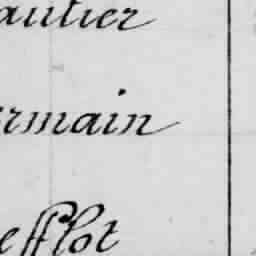 autier
rmain
efflot